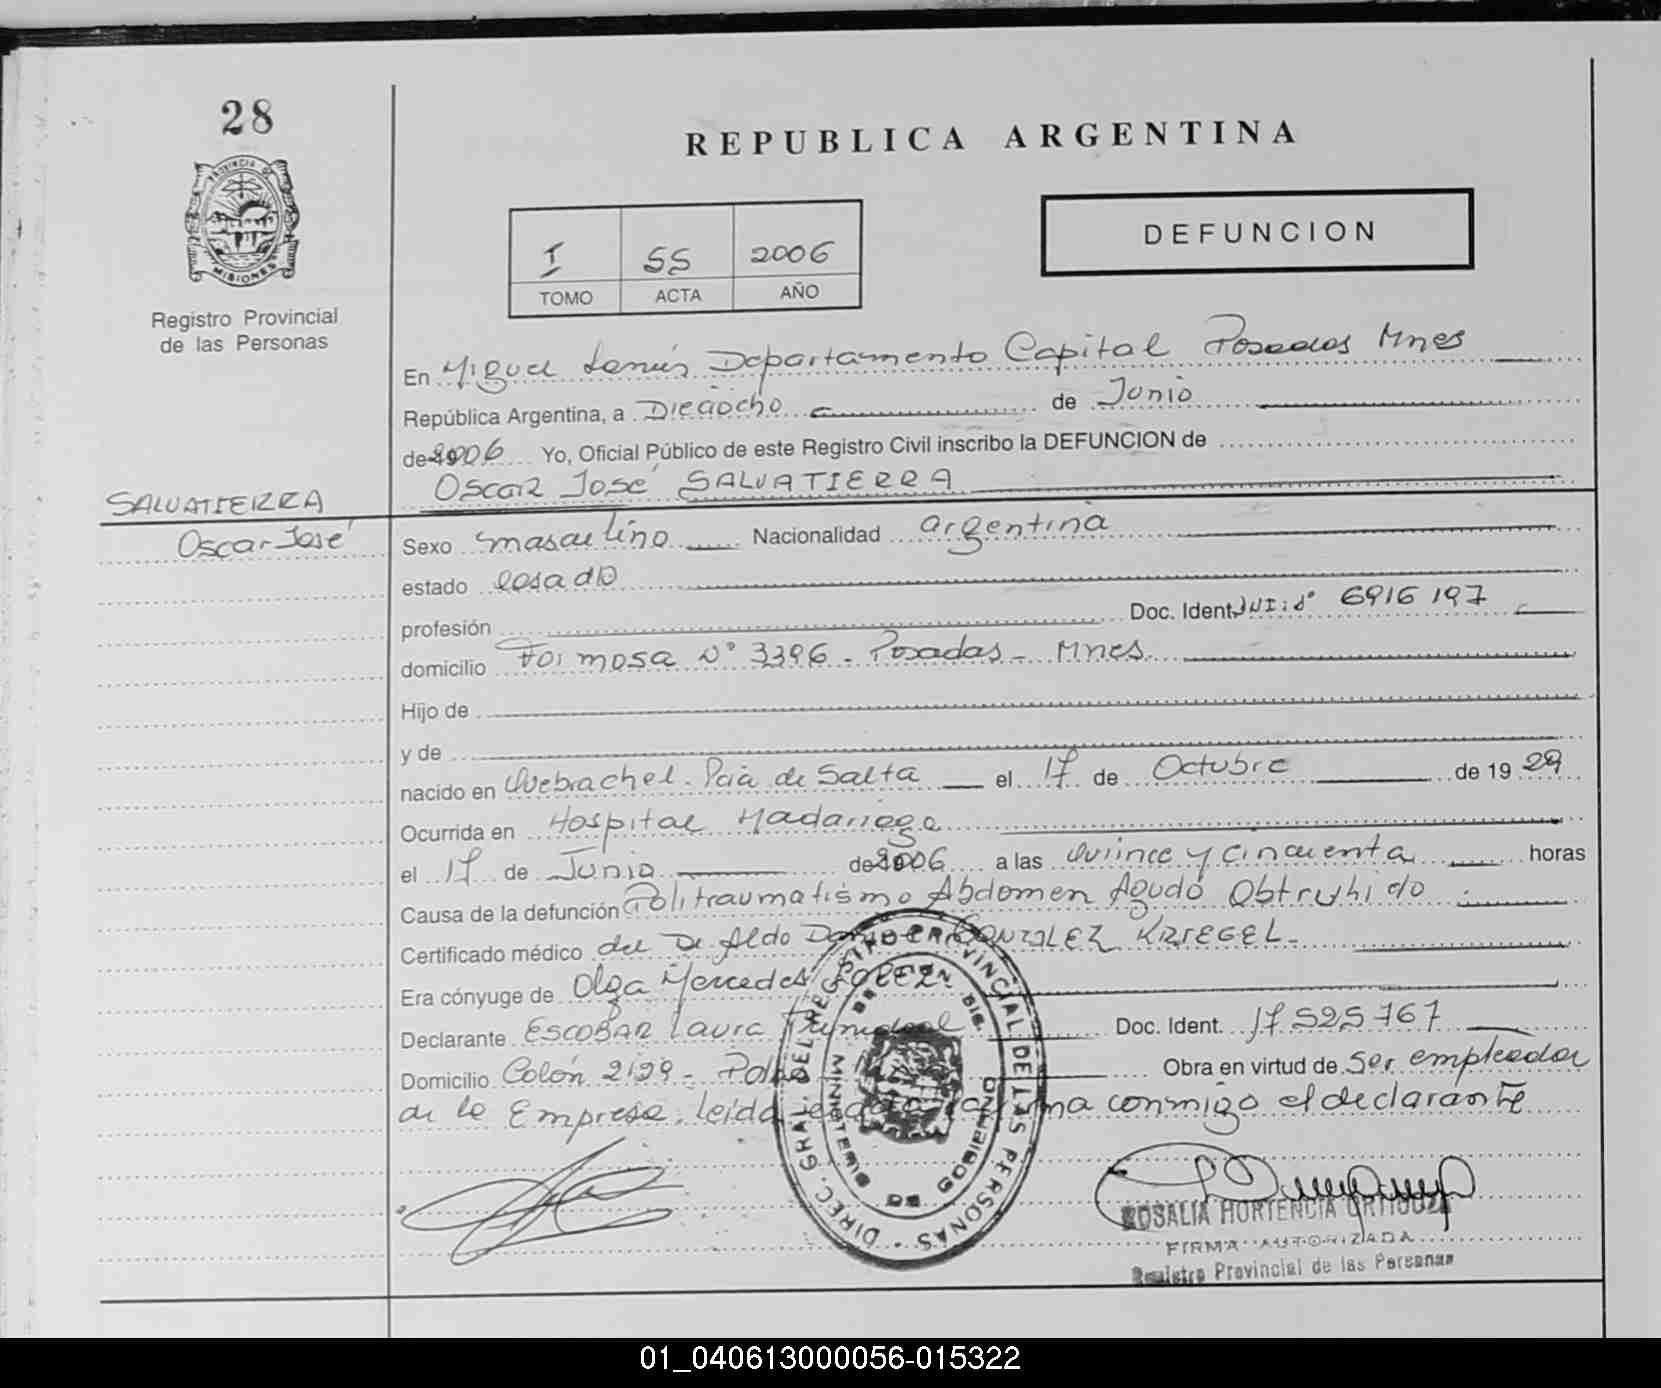 28
PROVINCIA DE
MISIONES
Registro Provincial
de las Personas
REPUBLICA ARGENTINA
I 55 2006
TOMO ACTA AÑO
DEFUNCION
En Miguel Lanús Departamento Capital Posadas Mnes
República Argentina, a Dieciocho de Junio
de 2006 Yo, Oficial Público de este Registro Civil inscribo la DEFUNCION de
Oscar José SALVATIERRA
SALVATIERRA
Oscar José
Sexo masculino Nacionalidad argentina
estado casado
profesión Doc. Ident. 6916197
domicilio Formosa N° 3396 - Posadas - Mnes.
Hijo de
y de
nacido en Quebrachel. Pcia de Salta el 17 de Octubre de 19 29
Ocurrida en Hospital Madariaga
el 17 de Junio de 2006 a las Quince y cincuenta horas
Causa de la defunción Politraumatismo Abdomen Agudo Obtruhido
Certificado médico del Dr. Aldo GONZALEZ KRIEGEL -
Era cónyuge de Olga Mercedes
Declarante ESCOBAR Laura Doc. Ident. 17.525.767
Domicilio Colón 2199 - Obra en virtud de Ser empleador
de la Empresa. leida firma conmigo el declarante
DIREC. GRAL. DEL REGISTRO PROVINCIAL DE LAS PERSONAS
MINISTERIO DE GOBIERNO
ROSALIA HORTENCIA URTIOUZA
FIRMA AUTORIZADA
Registro Provincial de las Personas
01_040613000056-015322